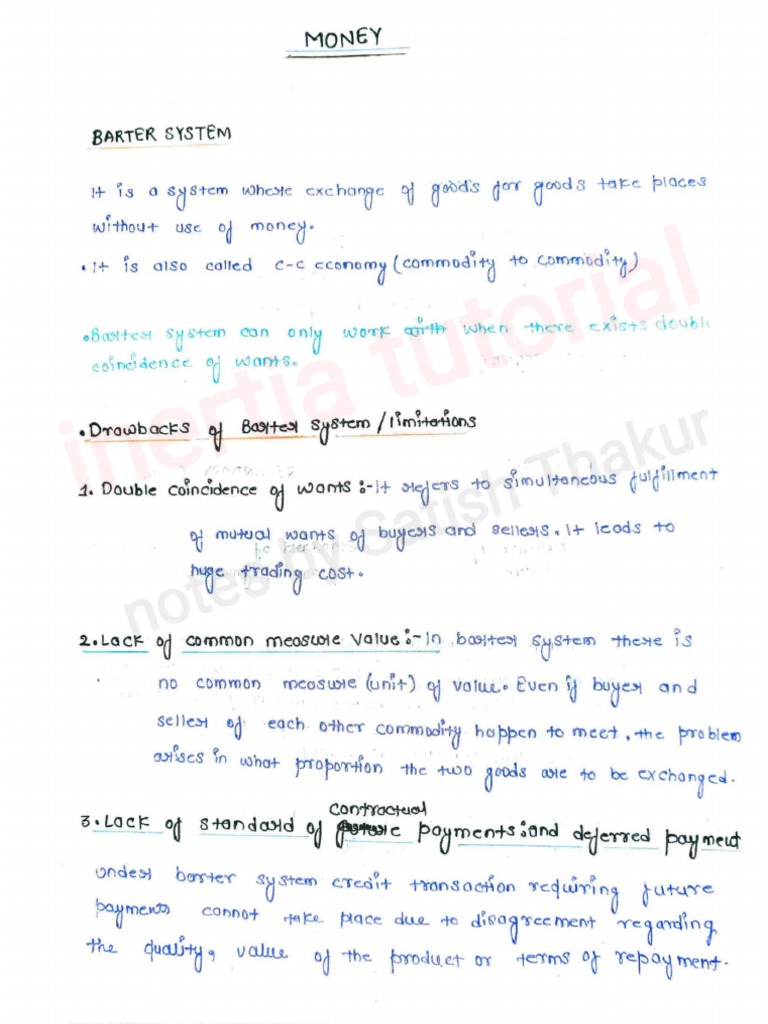 MONEY
BARTER SYSTEM
It is a system where exchange of goods for goods take places
without use of money.
• It is also called C-C economy (commodity to commodity)
• Barter system can only work when there exists double
coincidence of wants.
• Drawbacks of Barter system/limitations
1. Double coincidence of wants :- It refers to simultaneous fulfillment
of mutual wants of buyers and sellers. It leads to
huge trading cost.
2. Lack of common measure value :- In barter system there is
no common measure (unit) of value. Even if buyer and
seller of each other commodity happen to meet, the problem
arises in what proportion the two goods are to be exchanged.
contractual
3. Lack of standard of payments :and deferred payment
under barter system credit transaction requiring future
payments cannot take place due to disagreement regarding
the quality, value of the product or terms of repayment.
inertia tutorial
notes by Satish Thakur